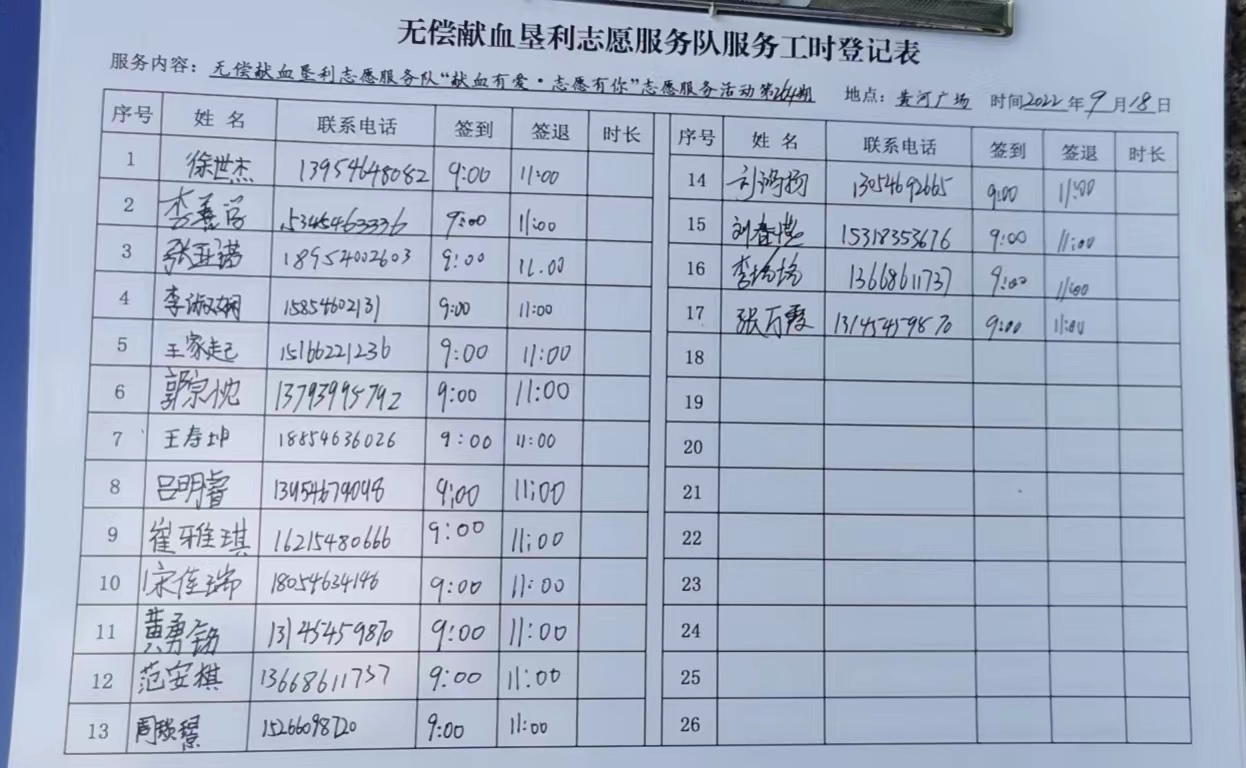 无偿献血垦利志愿服务队服务工时登记表
服务内容：无偿献血垦利志愿服务队“献血有爱·志愿有你”志愿服务活动第264期 地点：黄河广场 时间2022年9月18日
序号 姓名 联系电话 签到 签退 时长 序号 姓名 联系电话 签到 签退 时长
1 徐世杰 13954648082 9:00 11:00 14 刘鸿扬 13054692665 9:00 11:00
2 9:00 11:00 15 刘春 15318353676 9:00 11:00
3 张亚诺 18954002603 9:00 11.00 16 李 13668611737 9:00 11:00
4 李淑娴 15854602131 9:00 11:00 17 张万霞 13145459870 9:00 11:00
5 王家起 15166221236 9:00 11:00 18
6 郭宗忱 13793995792 9:00 11:00 19
7 王寿坤 18854636026 9:00 11:00 20
8 吕明睿 9:00 11:00 21
9 崔雅琪 16215480666 9:00 11:00 22
10 宋佳瑞 18054634146 9:00 11:00 23
11 黄勇 13145459870 9:00 11:00 24
12 范安棋 13668611737 9:00 11:00 25
13 周 15266098720 9:00 11:00 26